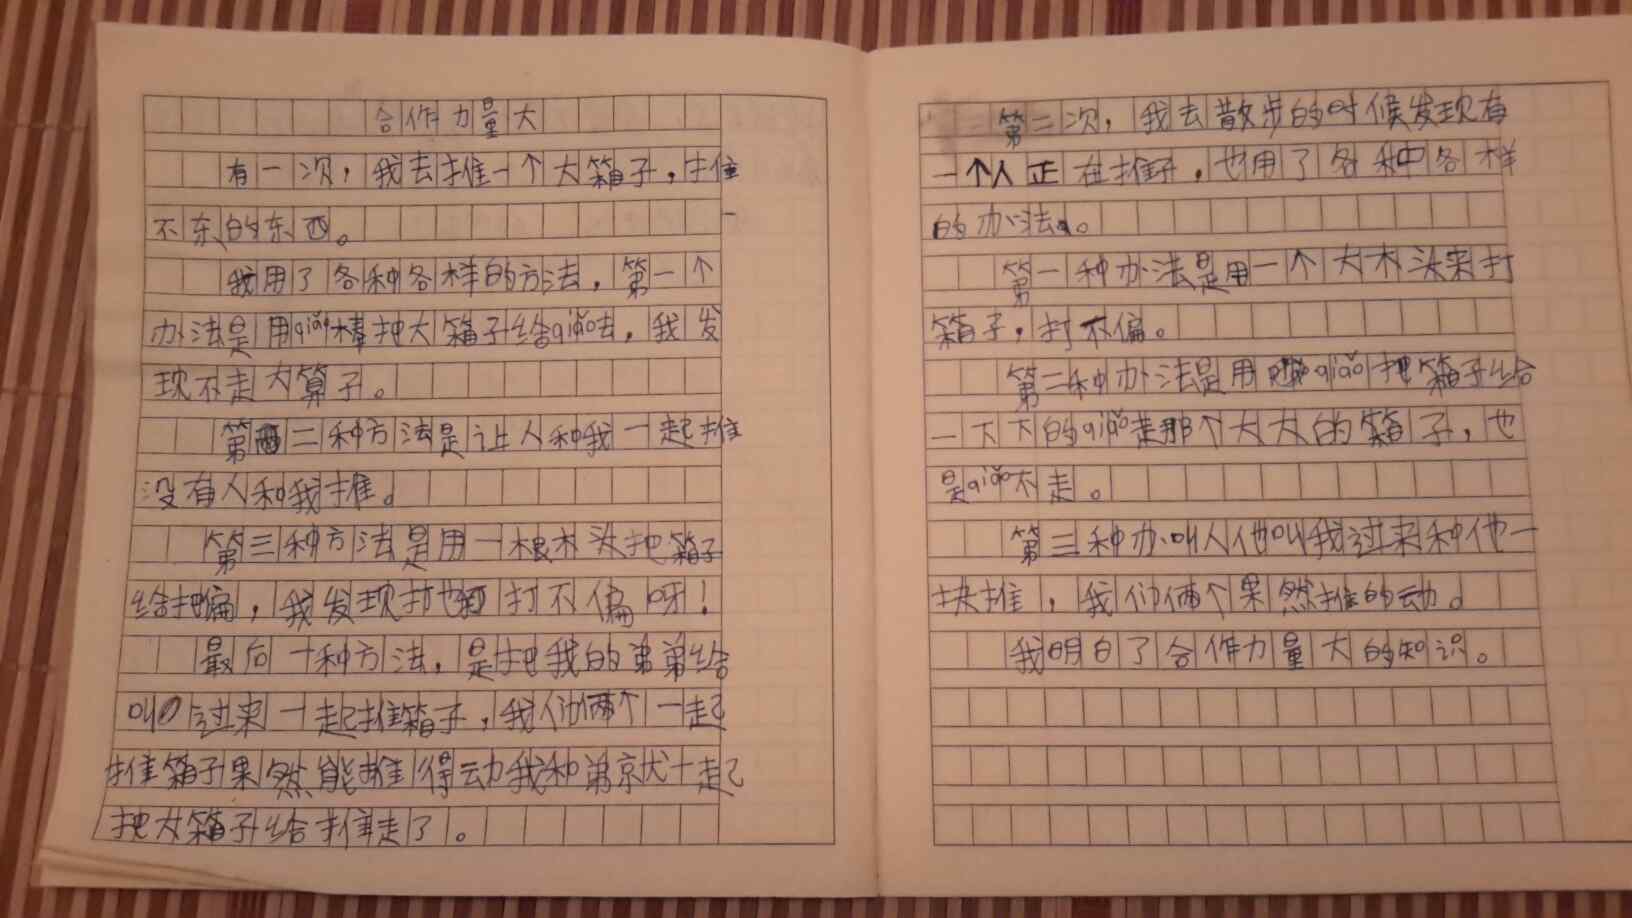 合作力量大
有一次，我去推一个大箱子，推
不东的东西。
我用了各种各样的方法，第一个
办法是用qiǎo棒把大箱子给qiǎo去，我发
现不走大箅子。
第二种方法是让人和我一起推
没有人和我推。
第三种方法是用一根木头把箱子
给把偏，我发现打也打不偏呀！
最后一种方法，是把我的弟弟给
叫过来一起推箱子，我们俩个一起
推箱子果然能推得动我和弟就一起
把大箱子给推走了。
第二次，我去散步的时候发现有
一个人正在推，也用了各种各样
的办法。
第一种办法是用一个大木头来打
箱子，打不偏。
第二种办法是用qiǎo把箱子给
一下下的qiǎo走那个大大的箱子，也
是qiǎo不走。
第三种办叫人他叫我过来种他一
块推，我们俩个果然推的动。
我明白了合作力量大的知识。